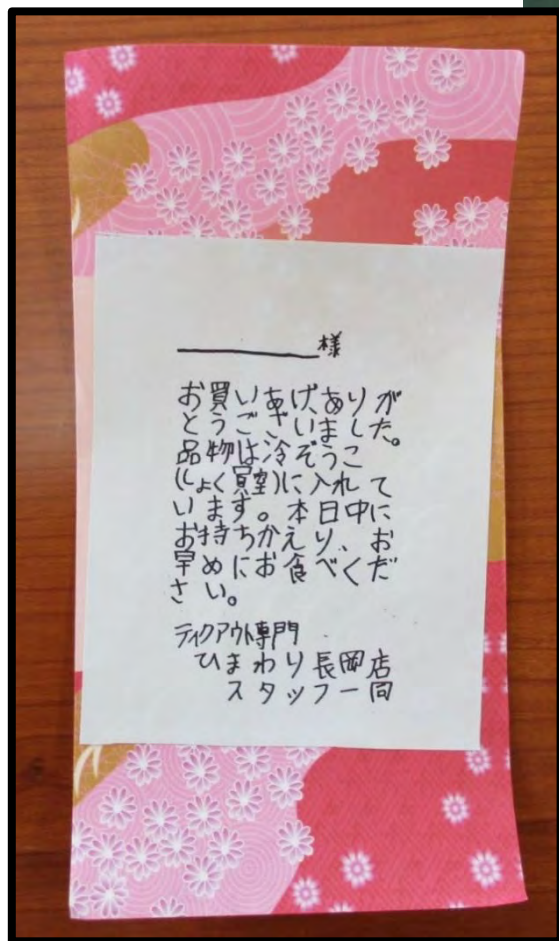 様
お買いあげ、ありが
とうございました。
品物は冷ぞうこ
(しょく員室)に入れて
います。本日中に
お持ちかえり、お
早めにお食べくだ
さい。
テイクアウト専門
ひまわり長岡店
スタッフ一同